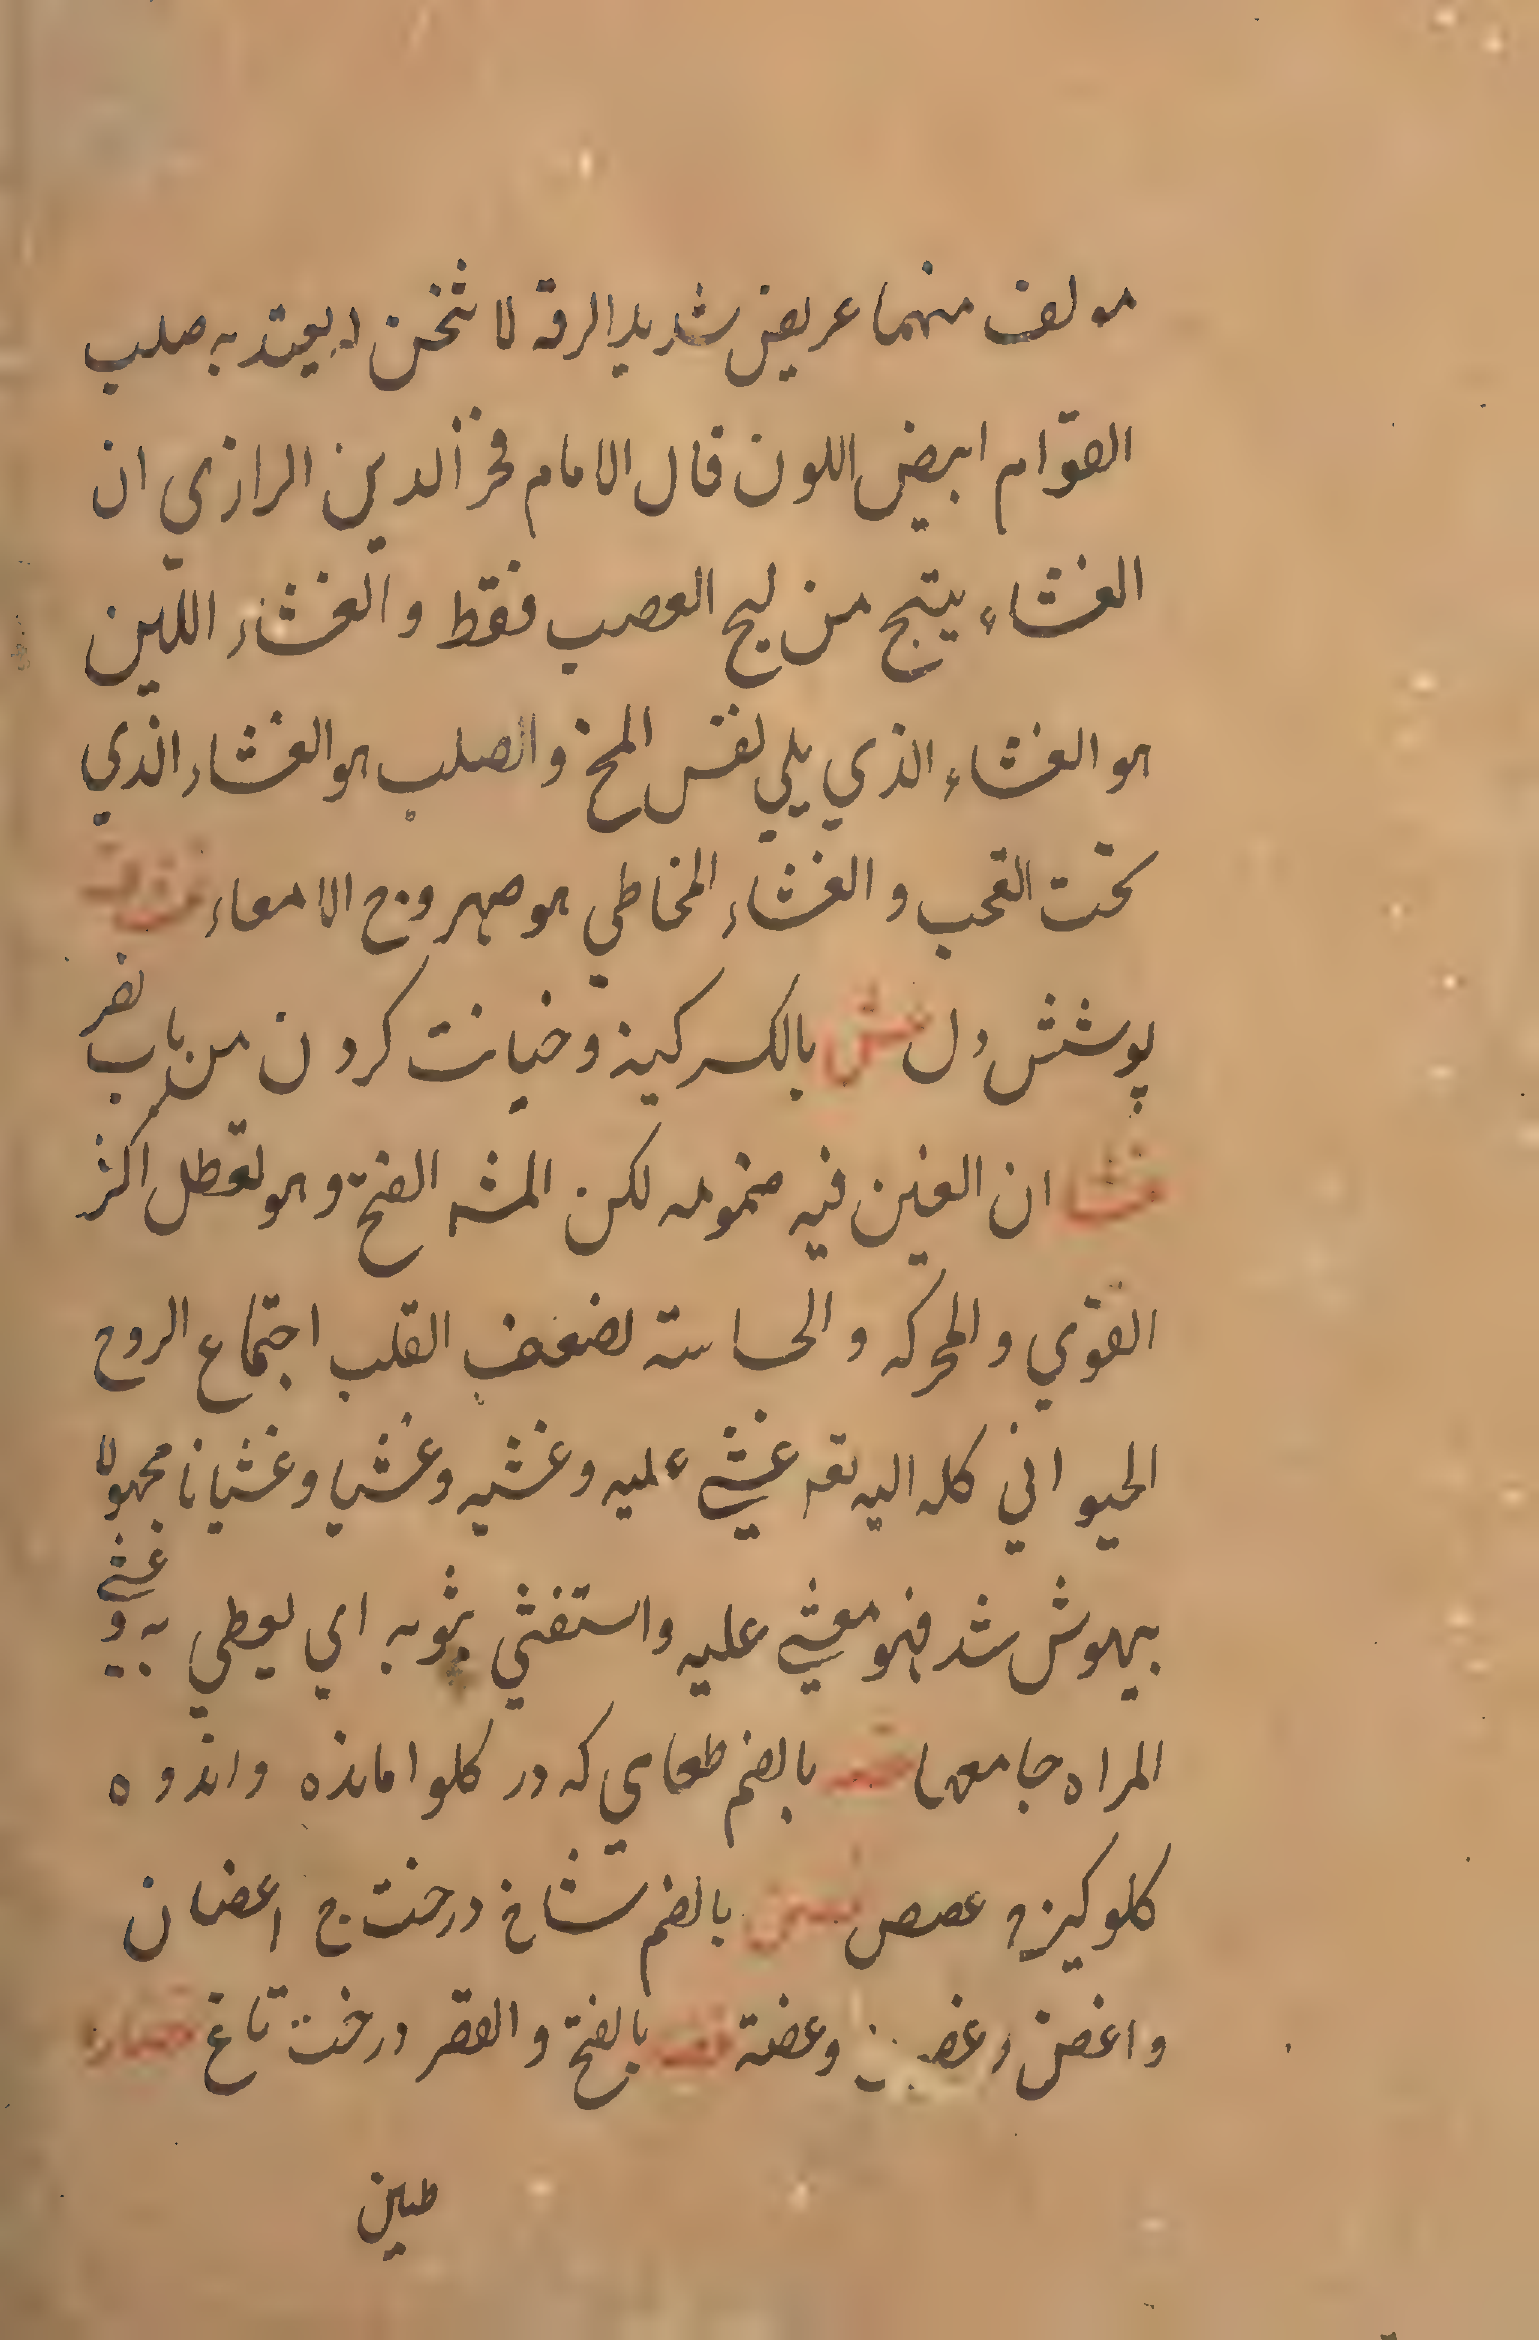 مولف منهما عريض شديد الرقه لا ثخن له يعتد به صلب
القوام ابيض اللون قال الامام فخر الدين الرازي ان
الغشاء ينتج من ليج العصب فقط والغشاء اللين
هو الغشاء الذي يلي نفس المخ والصلب هو الغشاء الذي
تحت القحب والغشاء المخاطي هو صهروج الامعاء
پوشش دل غش بالكسر كينه وخيانت كردن من باب نصر
غشا ان الغين فيه مضمومه لكن المشه الفتح وهو تعطل اكثر
القوي والمحركه والحاسته لضعف القلب اجتماع الروح
الحيواني كله اليه يقه غشي عليه وغشيه وغشيا وغشيانا مجهولا
بيهوش شد فهو مغشي عليه واستغشي بثوبه اي يعطي به و غشي
المراه جامعها بالضم طعامي كه در كلو امانده واندوه
كلوكيزه غصص غصن بالضم شاخ درخت ج اغصان
واغصن وغصن وغصنة بالفتح والقصر درخت تاغ غضاره
طين